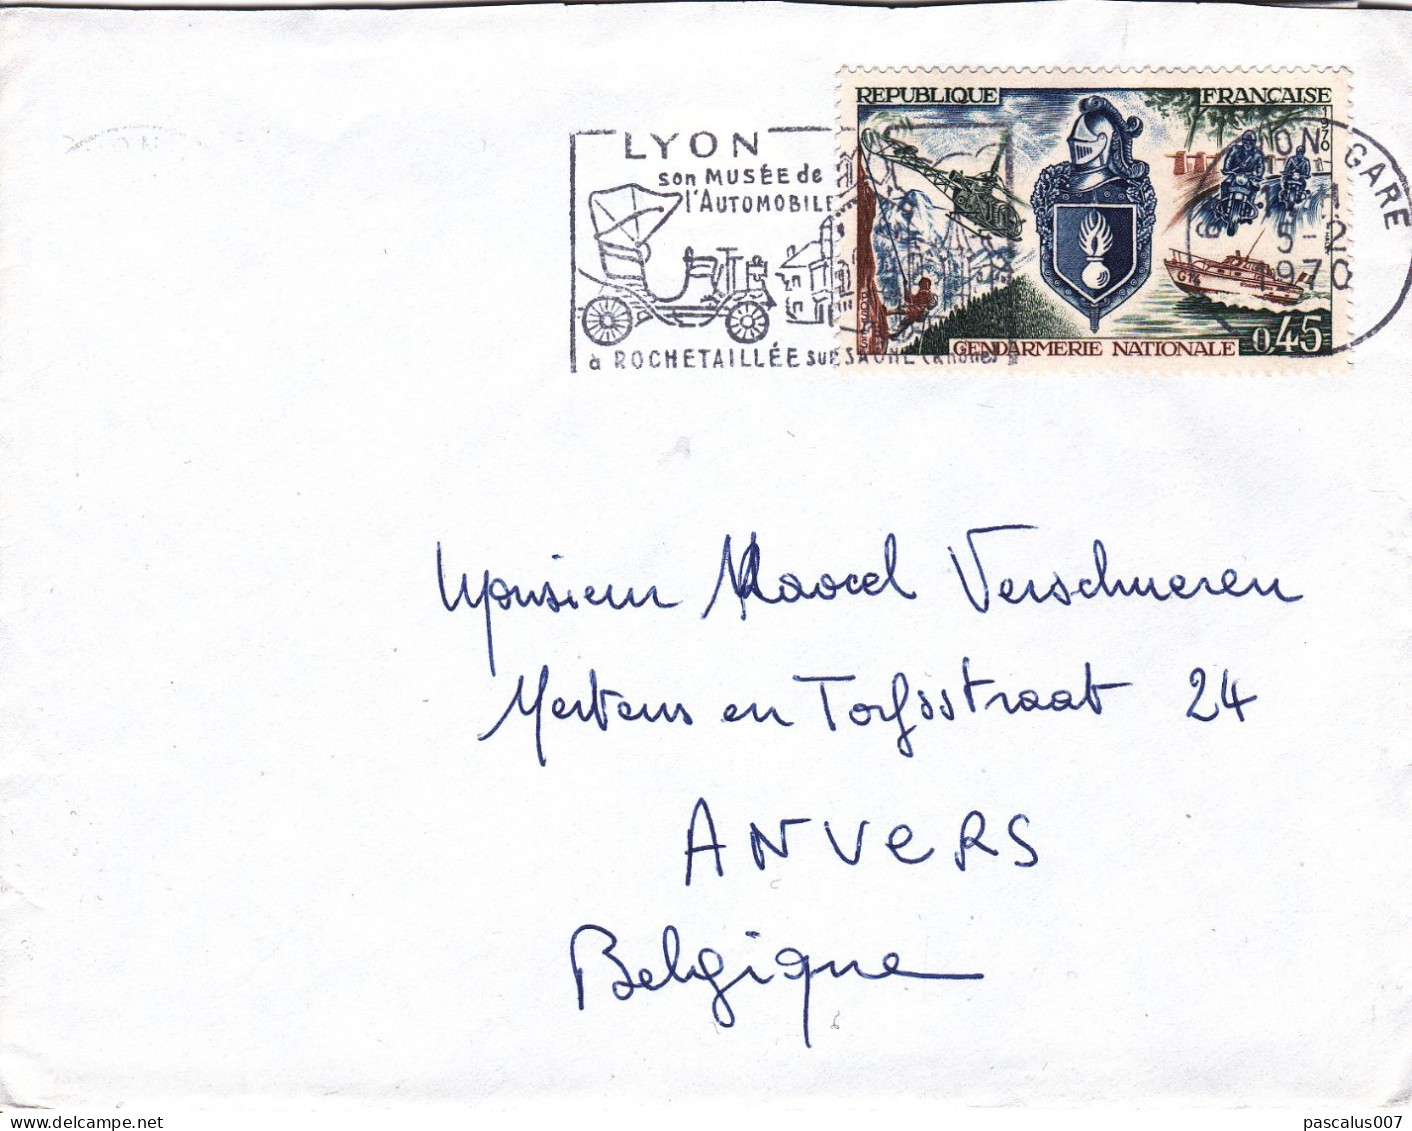 REPUBLIQUE FRANCAISE
1970
LYON
son MUSÉE de
l'AUTOMOBILE
à ROCHETAILLÉE sur SAONE (Rhône)
GARE
5-2
1970
G74
POSTES
GENDARMERIE NATIONALE 0,45
Monsieur Marcel Verschueren
Mertens en Torfsstraat 24
ANVERS
Belgique
www.delcampe.net
pascalus007